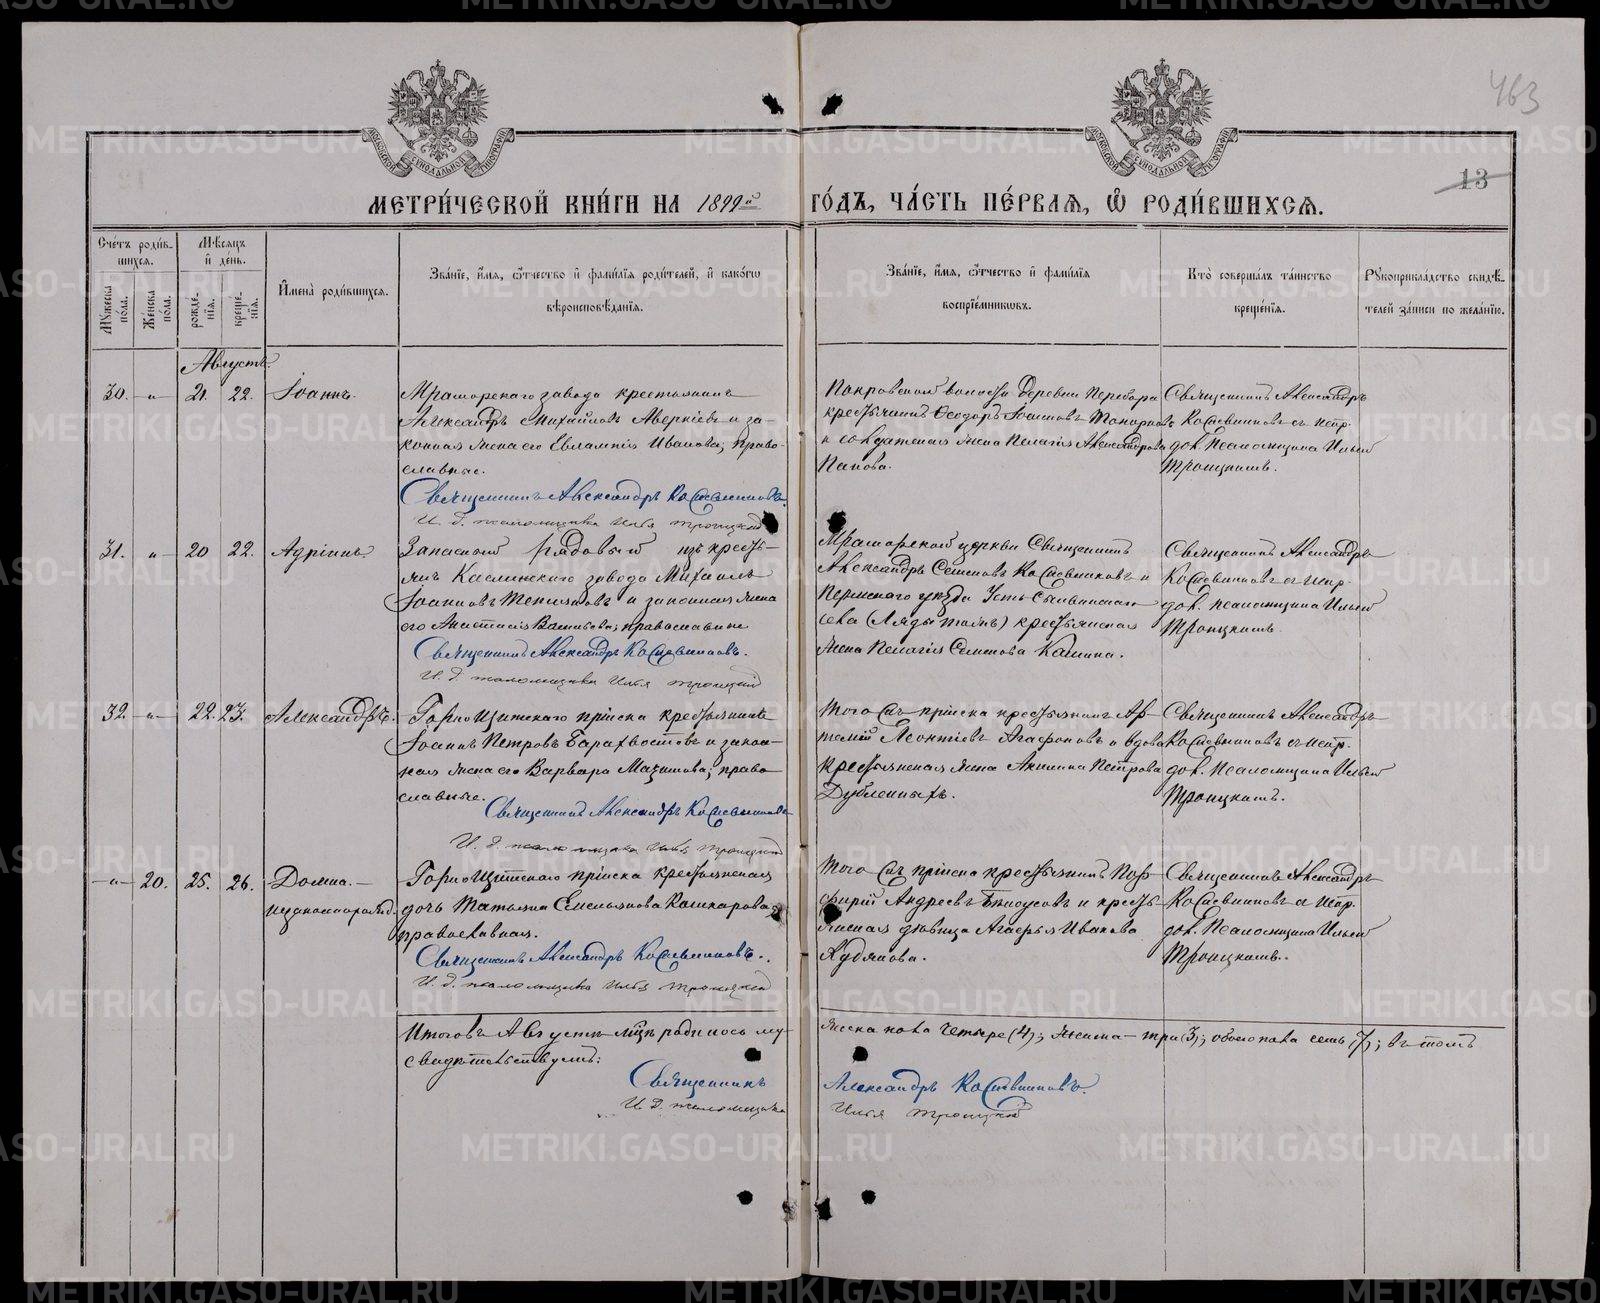 463
13
МОСКОВСКОЙ СѴНОДАЛЬНОЙ ТИПОГРАФІИ
МЕТРИ́ЧЕСКОЙ КНИ́ГИ НА 1899й ГО́ДЪ, ЧА́СТЬ ПЕ́РВАЯ, Ѡ РОДИ́ВШИХСЯ.
Сче́тъ роди́в-
шихся.
Му́жеска по́ла.
Же́нска по́ла.
Мѣ́сяцъ
и де́нь.
рожде́-
нїя.
креще́-
нїя.
Имена̀ роди́вшихся.
Зва́нїе, и́мя, ѻ҆́тчество и фами́лїя роди́телей, и како́гѡ
вѣроисповѣ́данїя.
Зва́нїе, и́мя, ѻ҆́тчество и фами́лїя
воспрїе́мниковъ.
Кто̀ соверша́лъ та́инство
креще́нїя.
Рукоприкла́дство свидѣ́-
телей за́писи по жела́нїю.
Августъ.
30. -„- 21. 22. Іоаннъ.
Мраморскаго завода крестьянинъ
Александръ Михайловъ Аверкіевъ и за-
конная жена его Евлампія Иванова; право-
славные.
Священникъ Александръ Кожевниковъ.
И. д. псаломщика Илья Троицкій
Покровской волости Деревни Перебора
крестьянинъ Ѳеодоръ Іоанновъ Топорковъ
и солдатская жена Пелагія Александрова
Попова.
Священникъ Александръ
Кожевниковъ съ испр.
дол. Псаломщика Ильей
Троицкимъ.
31. „ 20 22. Адріанъ
Запасный Рядовый изъ кресть-
янъ Каслинскаго завода Михаилъ
Іоанновъ и законная жена
его Анастасія Васильева; православные
Священникъ Александръ Кожевниковъ.
И. д. псаломщика Илья Троицкій
Мраморской церкви Священникъ
Александръ Семеновъ Кожевниковъ и
Пермскаго уѣзда Усть-Сылвинскаго
села (Ляды тожъ) крестьянская
жена Пелагія Семенова Кашина.
Священникъ Александръ
Кожевниковъ съ испр.
дол. псаломщика Ильей
Троицкимъ.
32. -„- 22. 23. Александръ.
Горнощитскаго пріиска крестьянинъ
Іоаннъ Петровъ Барахвостовъ и закон-
ная жена его Варвара Максимова; право
славные.
Священникъ Александръ Кожевниковъ
И. д. псаломщика Илья Троицкій
Того жъ пріиска крестьянинъ Ар-
темій Леонтіевъ Агафоновъ и вдова
крестьянская жена Акилина Петрова
Дубленныхъ.
Священникъ Александръ
Кожевниковъ съ испр.
дол. Псаломщика Ильей
Троицкимъ.
-„- 20. 25. 26. Домна.-
незаконнорожд.
Горнощитскаго пріиска крестьянская
дочь Татьяна Емельянова Кашкарова,
православная.
Священникъ Александръ Кожевниковъ.
И. д. псаломщика Илья Троицкій
Того жъ пріиска крестьянинъ Пор-
фирій Андреевъ Бѣлоусовъ и кресть-
янская дѣвица Агафья Иванова
Кубякова.
Священникъ Александръ
Кожевниковъ съ испр.
дол. Псаломщика Ильей
Троицкимъ.
Итого въ Августѣ мцѣ родилось му-
жеска пола четыре (4); женска - три (3); обоего пола семь (7); въ томъ
свидѣтельствуемъ:
Священникъ Александръ Кожевниковъ.
И. д. псаломщика Илья Троицкій
METRIKI.GASO-URAL.RU